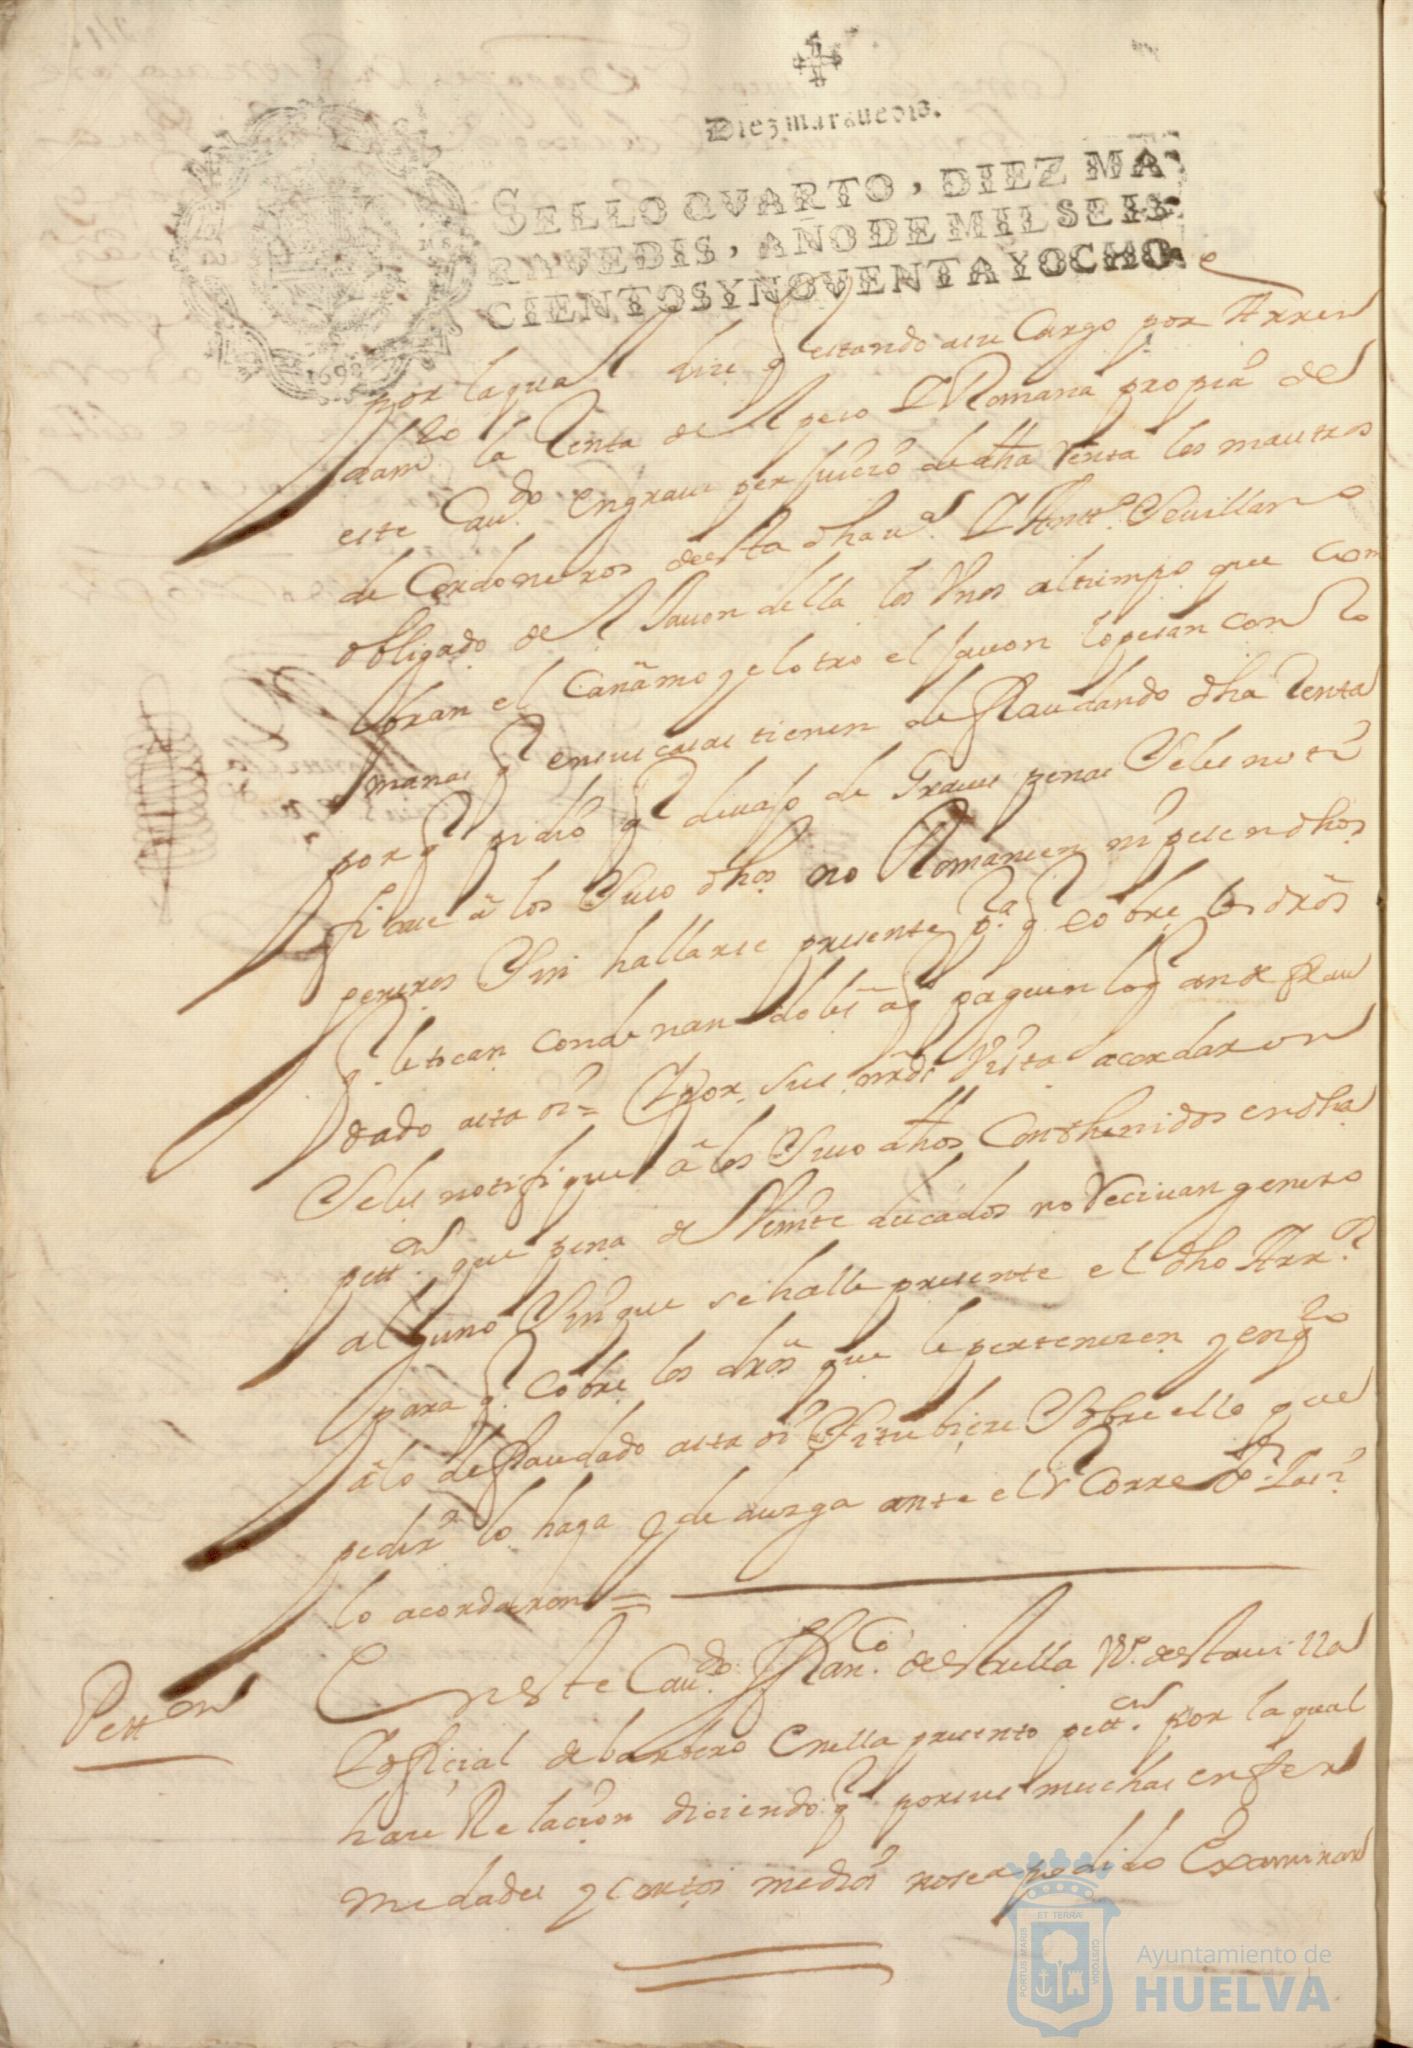 Diez marauedis.
SELLO QVARTO, DIEZ MA
RAVEDIS, AÑO DE MIL SEIS
CIENTOS Y NOVENTA Y OCHO
1698
por laqual dize q estando asu Cargo por Arren
damto la Renta del peso Y Romana propia del
este Caudo engraue perjuicio de dha Renta los maestros
de Cordoneros deesta dha va Y Antto Seuillano
obligado del Jauon della los Unos altiempo que com
bran el Cañamo y elotro el Jauon lopesan con Ro
manas q ensus casas tienen defraudando dha Renta
por q pidió q deuajo de Graues penas Seles noti
fique á los Suso dhos no Romaneen ni pesen dhos
generos Sin hallarse presente pa q cobre los dros
q le tocan condenandoles aq paguen loq an de frau
dado asta oi = Y por sus mrds Uista acordaron
Seles notifique á los Suso dhos Conthenidos en dha
petton que pena de Veinte ducados no Reciuan genero
alguno Sin que se halle presente el dho Arror
para q Cobre los dros que le pertenezen y enqto
álo defraudado asta oi Si tubiere Sobre ello que
pedir lo haga y deduzga ante el Sr Correxor Y asi
lo acordaron =
Petton
Eneste Caudo Franco deestrella Vo deestauilla
Y oficial de barbero Enella presento petton por la qual
haze Relacion diciendo q por sus muchas enfer
medades y cortos medios nosea podido Examinar
PORTUS MARIS ET TERRAE CUSTODIA
Ayuntamiento de
HUELVA